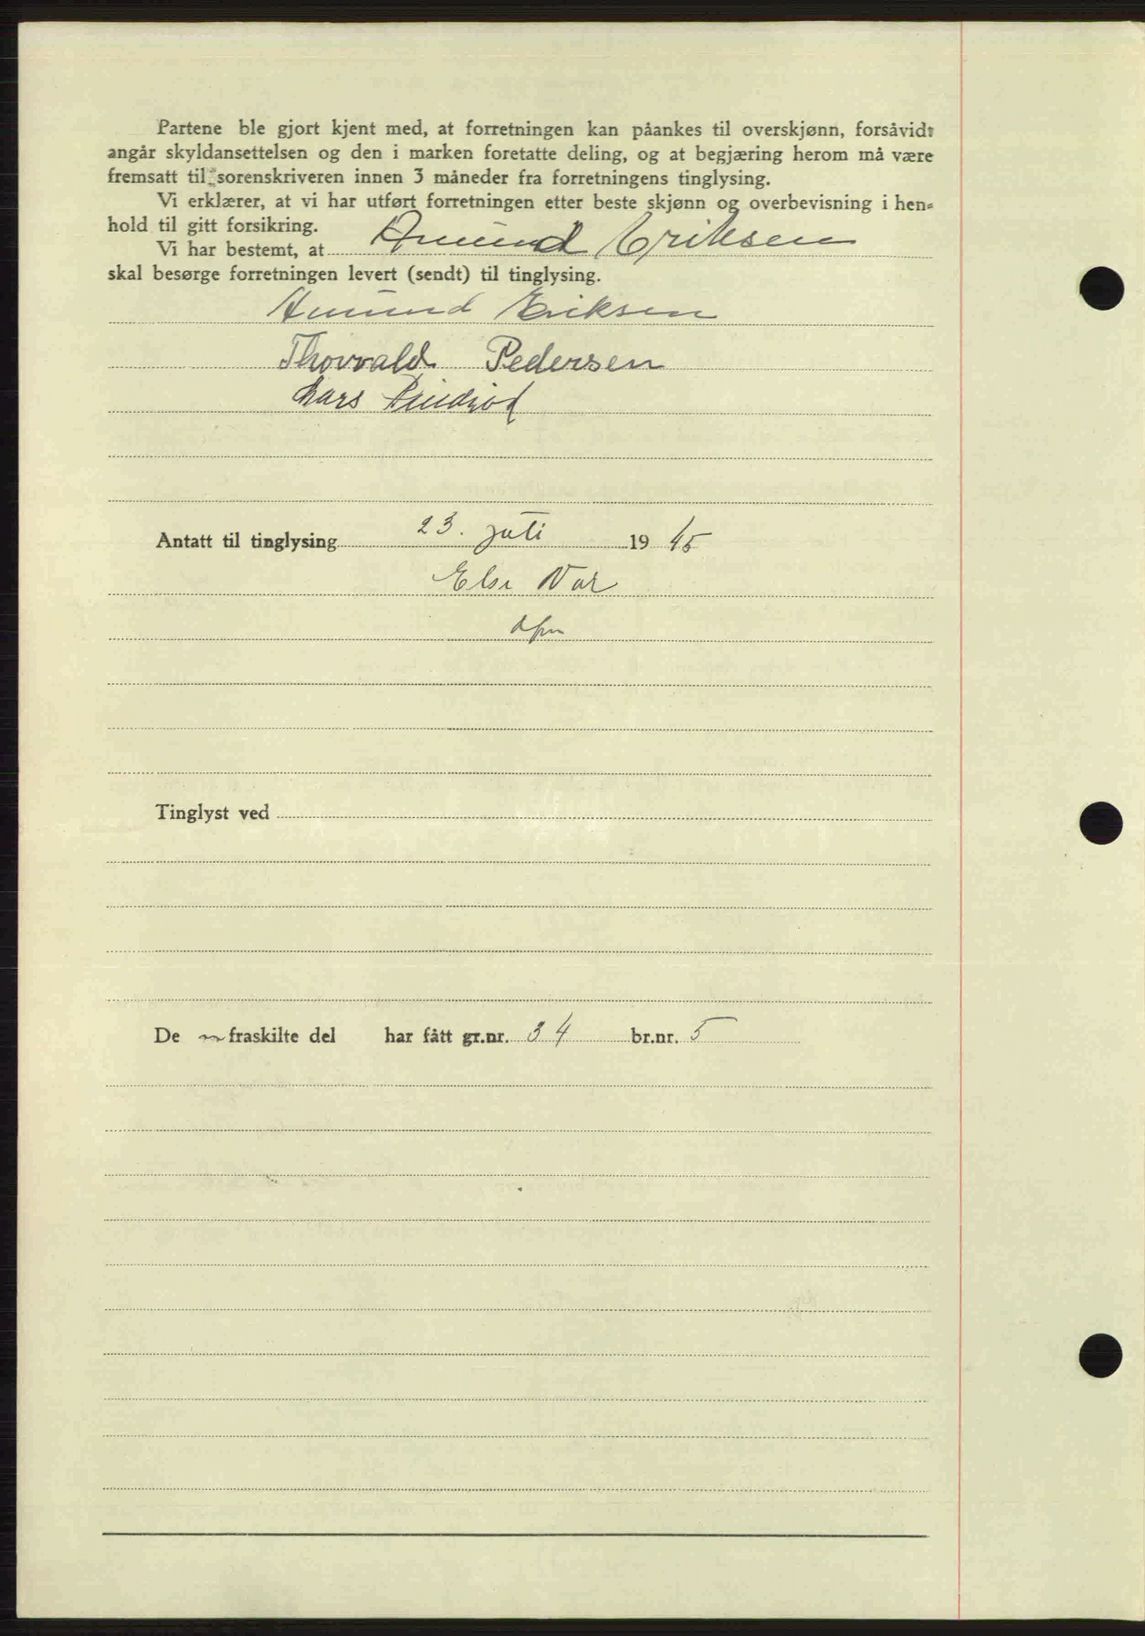 Partene ble gjort kjent med, at forretningen kan påankes til overskjønn, forsåvidt
angår skyldansettelsen og den i marken foretatte deling, og at begjæring herom må være
fremsatt til sorenskriveren innen 3 måneder fra forretningens tinglysing.
Vi erklærer, at vi har utført forretningen etter beste skjønn og overbevisning i hen-
hold til gitt forsikring.
Vi har bestemt, at Amund Eriksen
skal besørge forretningen levert (sendt) til tinglysing.
Amund Eriksen
Thorvald Pedersen
Lars
Antatt til tinglysing 23. juli 1945
Else
Tinglyst ved
De fraskilte del har fått gr.nr. 34 br.nr. 5